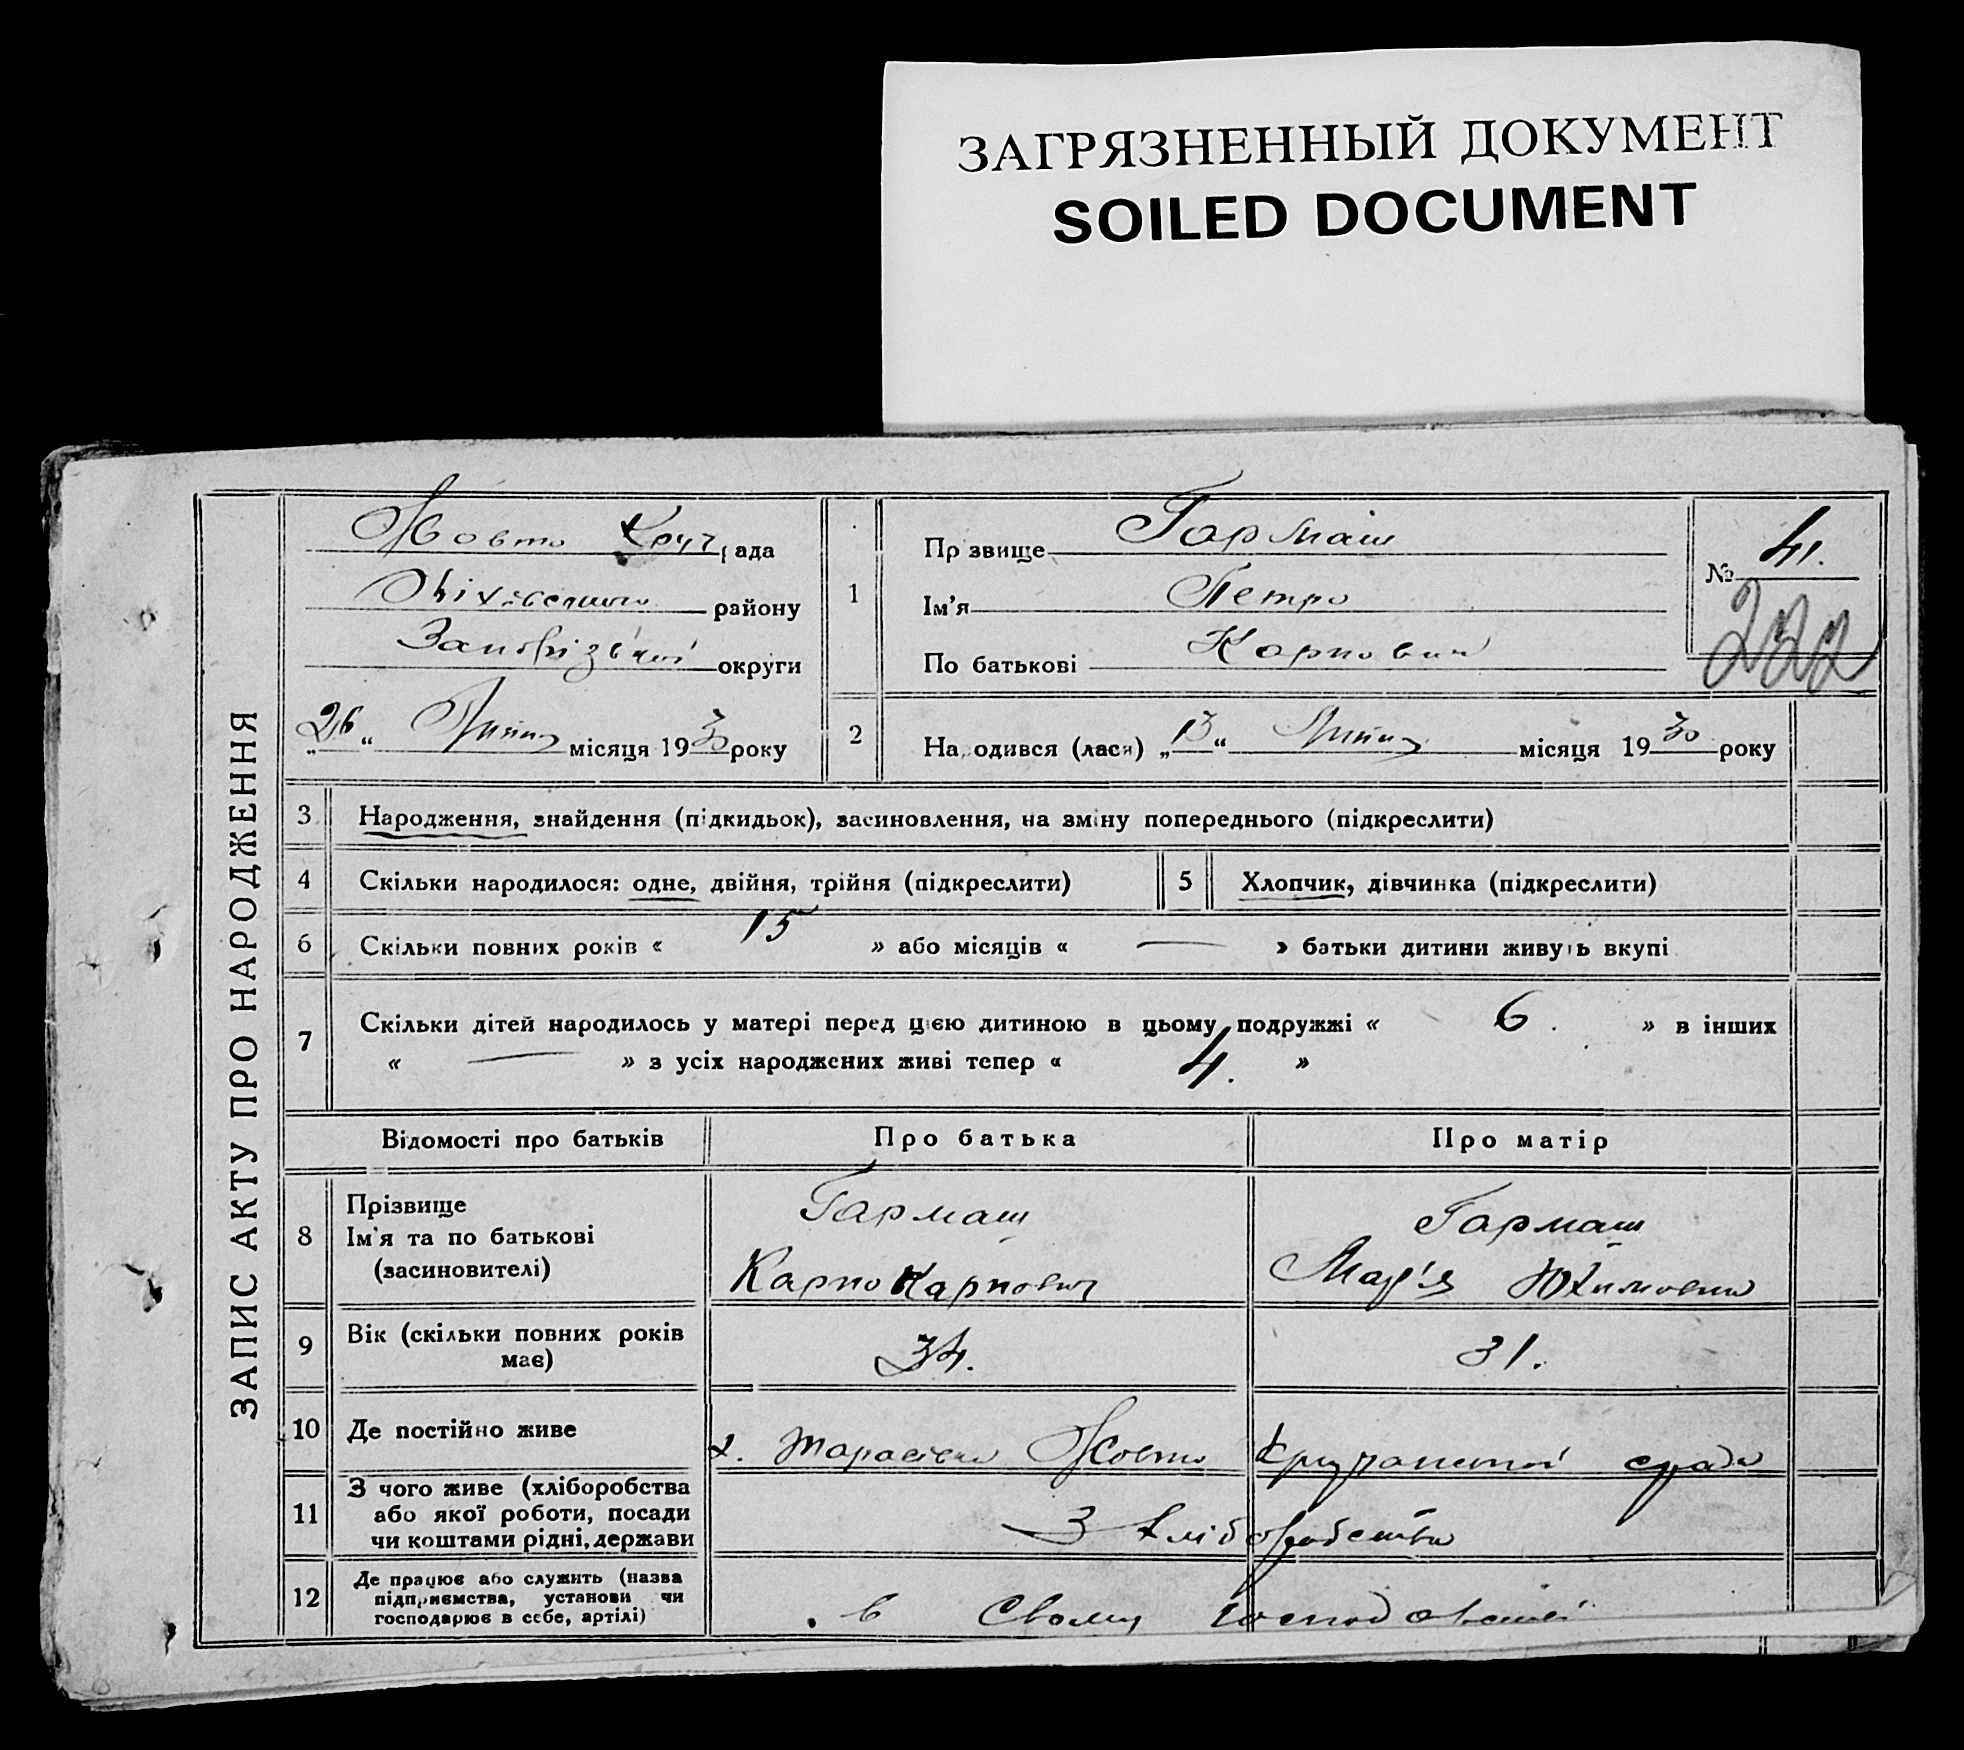 ЗАГРЯЗНЕННЫЙ ДОКУМЕНТ
SOILED DOCUMENT
ЗАПИС АКТУ ПРО НАРОДЖЕННЯ
Жовто Круч рада
району
округи
„26“ місяця 1930 року
1
Прiзвище Гармаш
Ім'я Петро
По батькові Карпович
№ 41.
222
2 Народився (лася) „13“ місяця 1930 року
3 Народження, знайдення (підкидьок), засиновлення, на зміну попереднього (підкреслити)
4 Скільки народилося: одне, двійня, трійня (підкреслити)
5 Хлопчик, дівчинка (підкреслити)
6 Скільки повних років « 15 » або місяців « — » батьки дитини живуть вкупі
7 Скільки дітей народилось у матері перед цією дитиною в цьому подружжі « 6. » в інших
« — » з усіх народжених живі тепер « 4. »
Відомості про батьків
Про батька
Про матір
8 Прізвище
Ім'я та по батькові
(засиновителі)
Гармаш
Карпо Карпович
Гармаш
Мар'я Юхимовна
9 Вік (скільки повних років
має)
34.
31.
10 Де постійно живе
х. Тарасівка Жовто Кручанської сради
11 З чого живе (хліборобства
або якої роботи, посади
чи коштами рідні, держави
З хліборобства
12 Де працює або служить (назва
підприємства, установи чи
господарює в себе, артілі)
в Свому